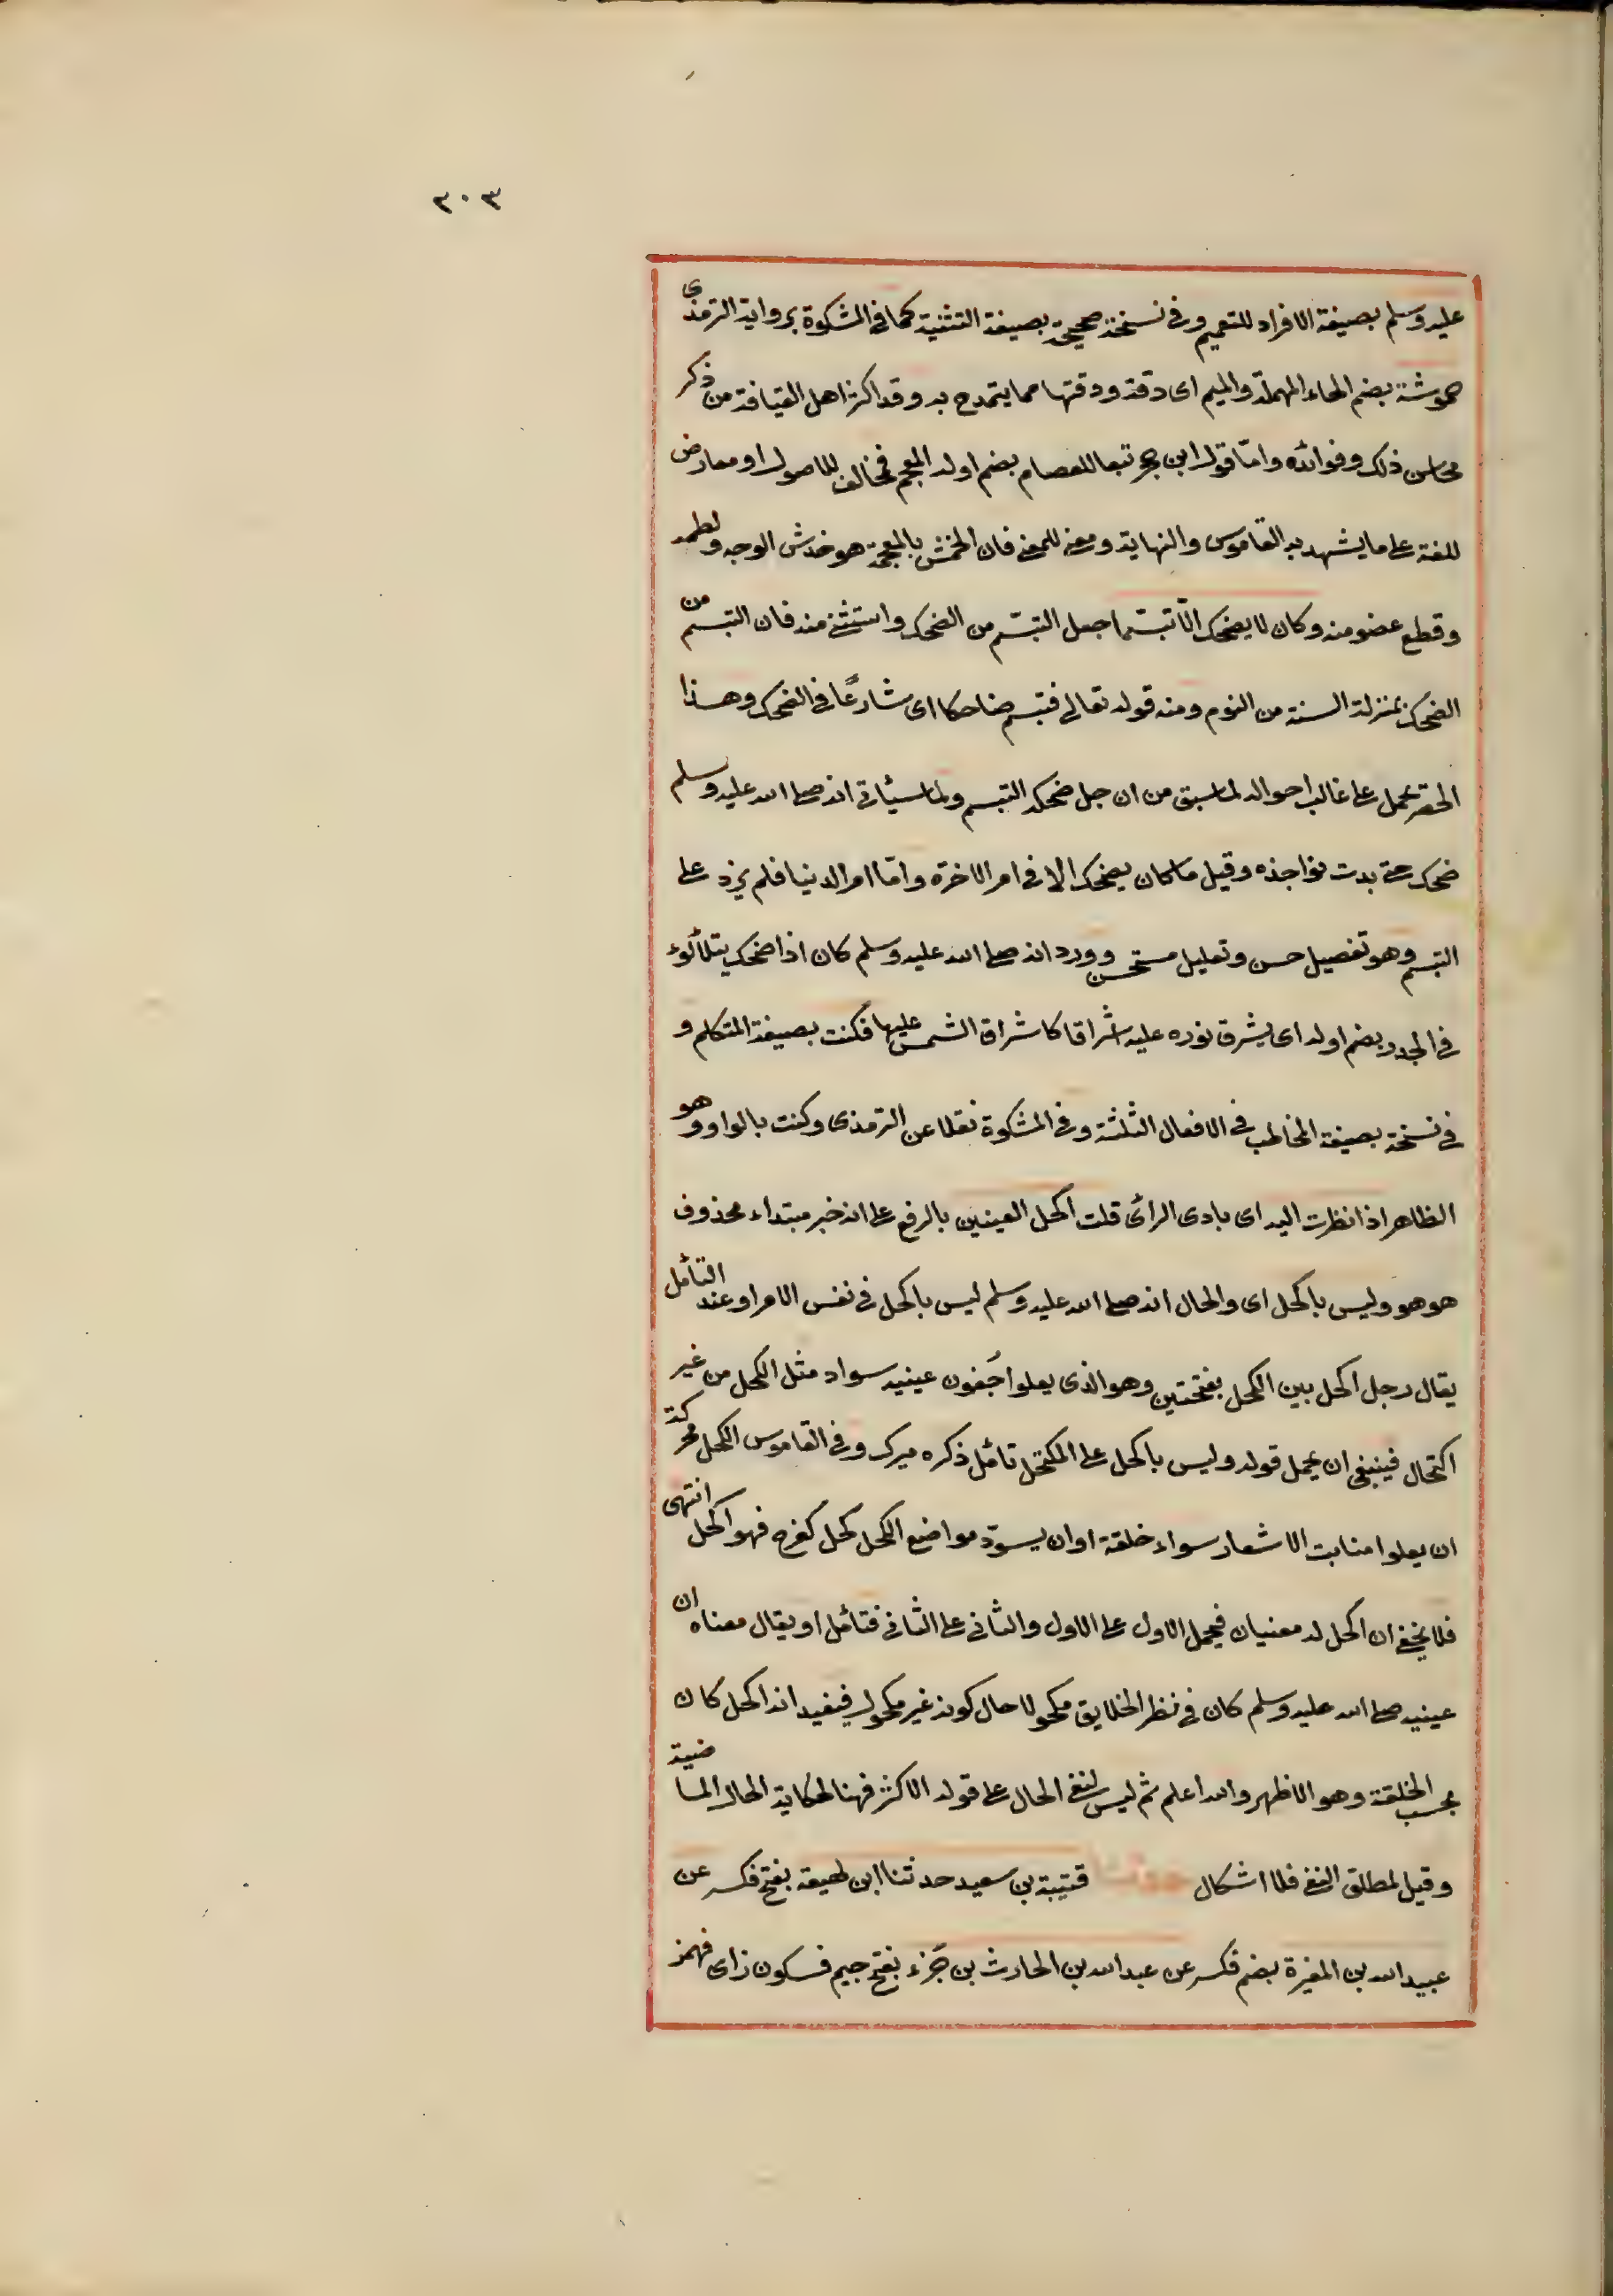 ٣٠٣
عليه وسلم بصيغة الافراد للتعميم وفى نسخة صحيحة بصيغة التثنية كما فى المشكوة برواية الترمذى
حموشة بضم الحاء المهملة والميم اى دقة ودقتها مما يتمدح به وقد اكثر اهل القيافة من ذكر
محاسن ذلك وفوائده وامّا قول ابن حجر تبعا للعصام بضم اوله المعجم فمخالف للاصول او معارض
للغة على ما يشهد به القاموس والنهاية ومغير للمعنى فان الخمش بالمعجمة هو خدش الوجه ولطمه
وقطع عضو منه وكان لا يضحك الّا تبسّما جعل التبسّم من الضحك واستثنى منه فان التبسم من
الضحك بمنزلة السنة من النوم ومنه قوله تعالى فتبسم ضاحكا اى شارعًا فى الضحك وهذا
الحصر يحمل على غالب احواله لما سبق من ان جل ضحكه التبسم ولما سيأتى انه صلى الله عليه وسلم
ضحك حتى بدت نواجذه وقيل ما كان يضحك الا فى امر الاخرة وامّا امر الدنيا فلم يزد على
التبسم وهو تفصيل حسن وتعليل مستحسن وورد انه صلى الله عليه وسلم كان اذا ضحك يتلألؤ
فى الجدر بضم اوله اى يشرق نوره عليه اشراقا كاشراق الشمس عليها فكنت بصيغة المتكلم و
فى نسخة بصيغة المخاطب فى الافعال الثلثة وفى المشكوة نقلا عن الترمذى وكنت بالواو وهو
الظاهر اذا نظرت اليه اى بادى الرائ قلت اكحل العينين بالرفع على انه خبر مبتداء محذوف
هو هو وليس باكحل اى والحال انه صلى الله عليه وسلم ليس باكحل فى نفس الامر او عند التأمل
يقال رجل اكحل بين الكحل بفتحتين وهو الذى يعلو اجفون عينيه سواد مثل الكحل من غير
اكتحال فينبغى ان يحمل قوله وليس باكحل على المكتحل تأمل ذكره ميرك وفى القاموس الكحل محركة
ان يعلو منابت الاشعار سواد خلقة او ان يسودّ مواضع الكحل كحل كفرح فهو اكحل انتهى
فلا يخفى ان اكحل له معنيان فيحمل الاول على الاول والثانى على الثانى فتأمل او يقال معناه ان
عينيه صلى الله عليه وسلم كان فى نظر الخلايق مكحولا حال كونه غير مكحول فيفيد انه اكحل كان
بحسب الخلقة وهو الاظهر والله اعلم ثم ليس لنفى الحال على قول الاكثر فهنا لحكاية الحال الماضية
وقيل لمطلق النفى فلا اشكال حدثنا قتيبة بن سعيد حدثنا ابن لهيعة بفتح فكسر عن
عبيد الله بن المغيرة بضم فكسر عن عبد الله بن الحارث بن جَزء بفتح جيم فسكون زاى فهمز